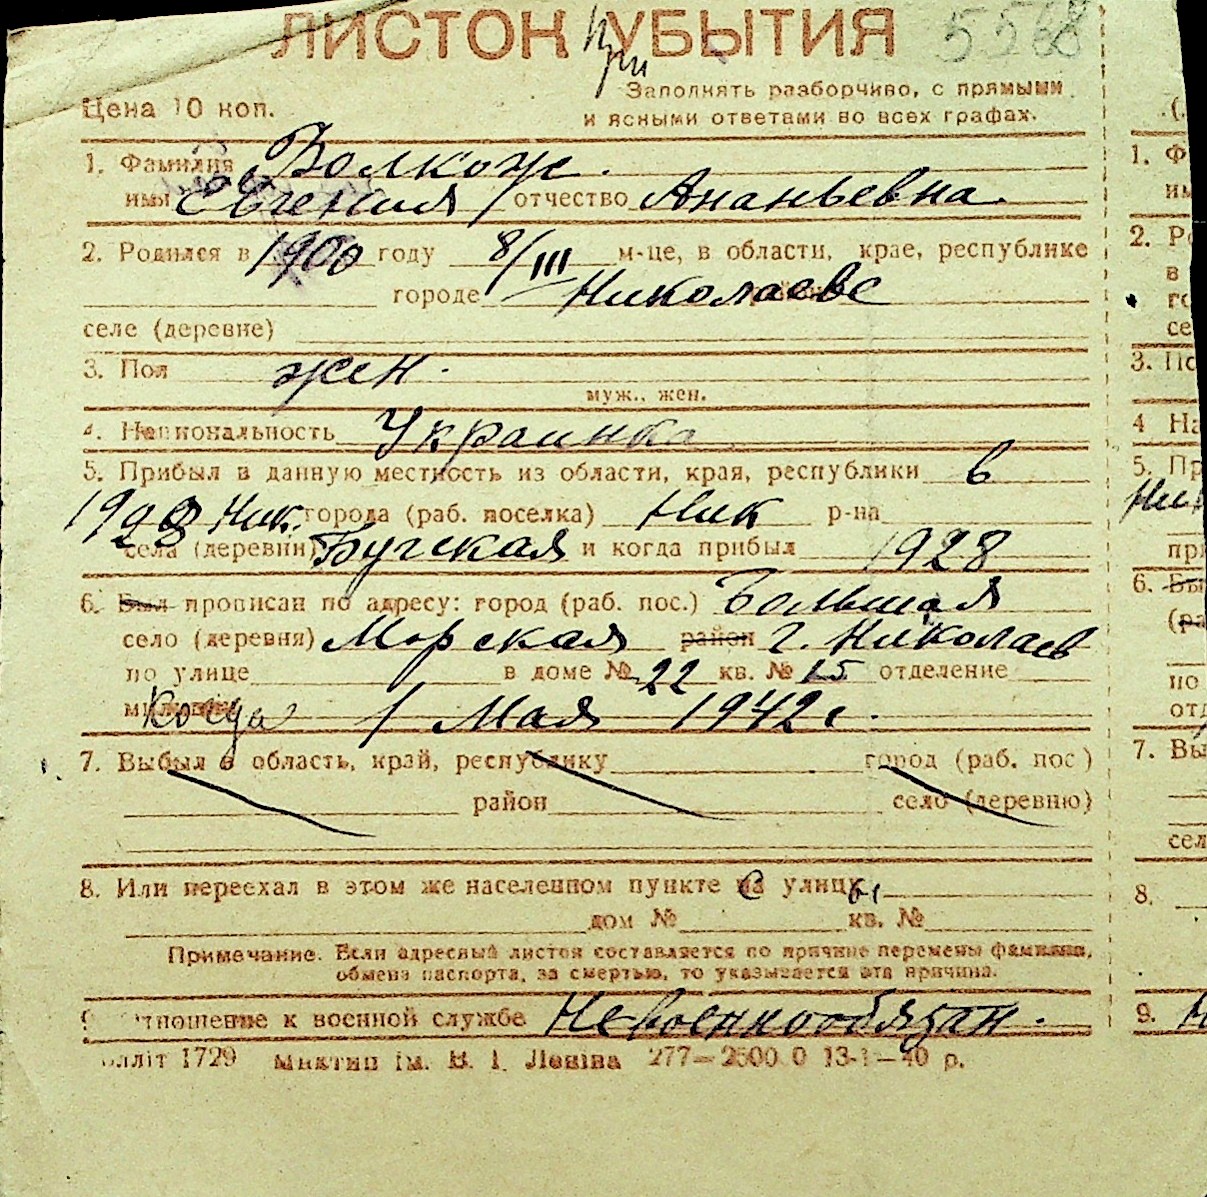 ЛИСТОК При УБЫТИЯ 5568
Заполнять разборчиво, с прямыми
Цена 10 коп.
и ясными ответами во всех графах.
1. Фамилия Волкож.
имя Евгения отчество Ананьевна
2. Родился в 1900 году 8/III м-це, в области, крае, республике
городе Николаеве
селе (деревне)
3. Пол жен.
муж., жен.
4. Национальность Украинка
5. Прибыл в данную местность из области, края, республики в
1928 Ник. города (раб. поселка) Ник р-на
села (деревни) Бугская и когда прибыл 1928
6. Был прописан по адресу: город (раб. пос.) Большая
село (деревня) Морская район г. Николаев
по улице в доме № 22 кв. № 15 отделение
Когда 1 Мая 1942 г.
7. Выбыл в область, край, республику город (раб. пос)
район село (деревню)
8. Или переехал в этом же населенном пункте на улицу
дом № кв. №
Примечание. Если адресный листок составляется по причине перемены фамилии,
обмена паспорта, за смертью, то указывается эта причина.
9. Отношение к военной службе Невоеннообязан.
1729 ім. В. І. Леніна 277—2600 0 13-1—40 р.
1. Ф
им
2. Ро
в
го
се
3. По
4 На
5. Пр
Ник
при
6. Бы
(ра
по
отд
7. Вы
сел
8.
9. Н